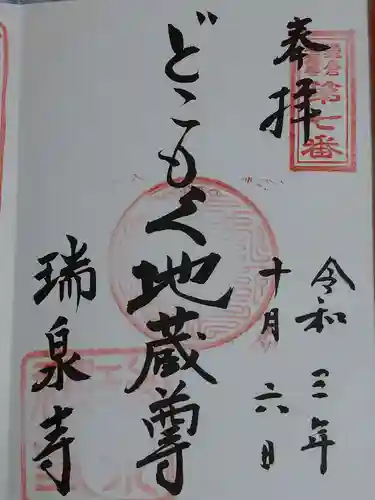 奉拝
鎌倉
第七番
令和三年
十月六日
どこもく地蔵尊
瑞泉寺